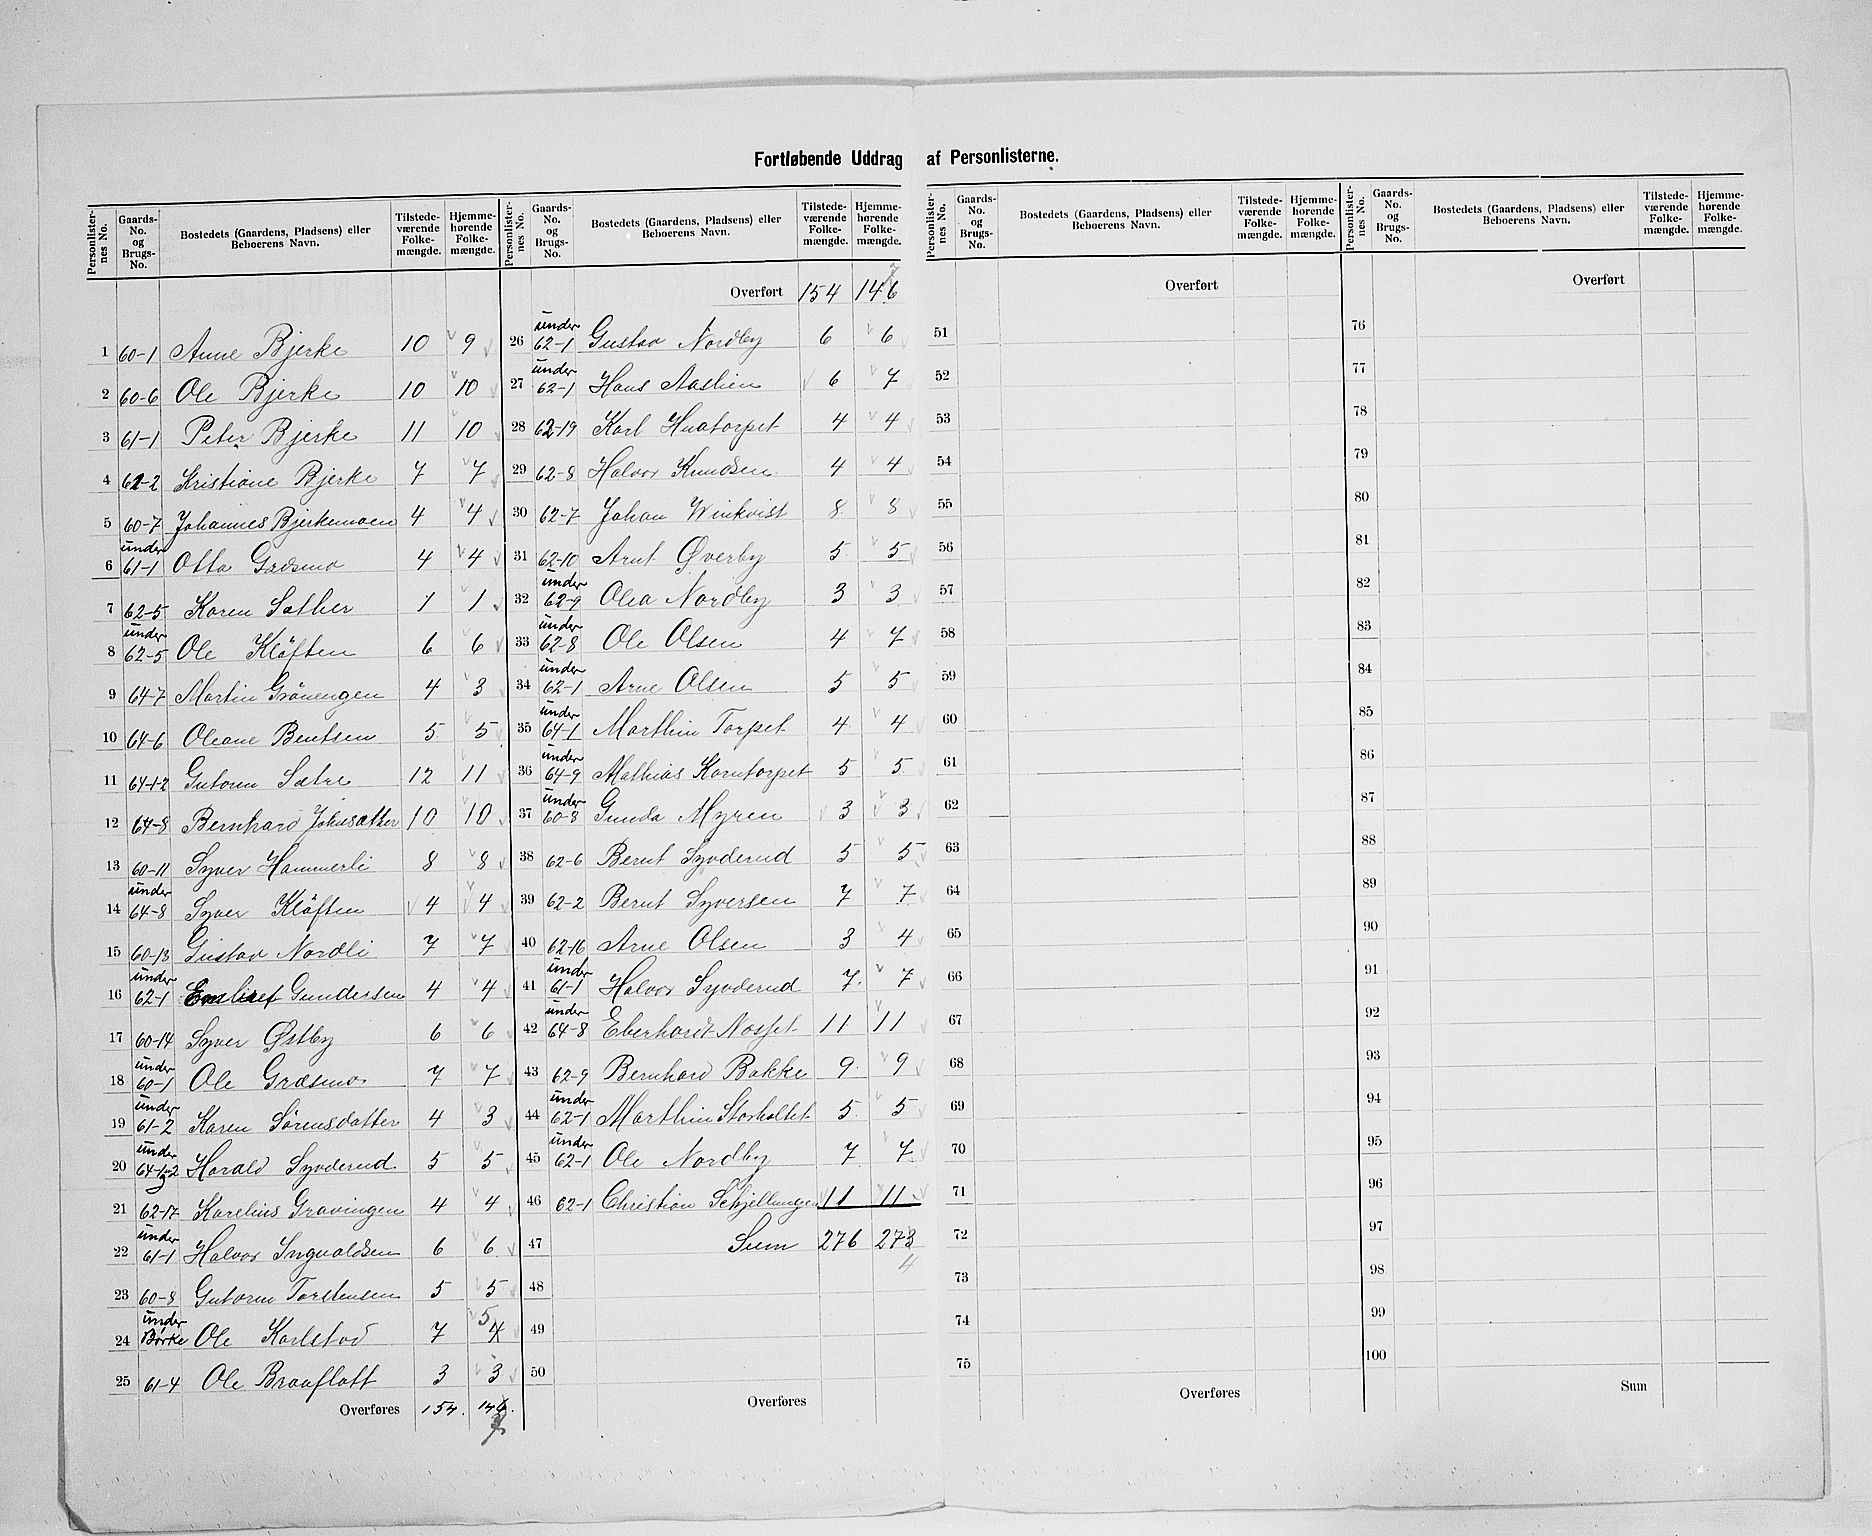 Fortløbende Uddrag af Personlisterne.
Personlister-nes No. | Gaards-No. og Brugs-No. | Bostedets (Gaardens, Pladsens) eller Beboerens Navn. | Tilstede-værende Folke-mængde. | Hjemme-hørende Folke-mængde.
1 60-1 Anne Bjerke 10 9
2 60-6 Ole Bjerke 10 10
3 61-1 Peter Bjerke 11 10
4 61-2 Kristiane Bjerke 7 7
5 60-7 Johannes Bjerkemoen 4 4
6 under 61-1 Otto Græsmo 4 4
7 62-5 Karen Sæther 1 1
8 under 62-5 Ole Kløften 6 6
9 64-7 Martin Grönengen 4 3
10 64-6 Oleane Bentsen 5 5
11 64-1-2 Gutorm Sætre 12 11
12 64-8 Bernhard Johnsætter 10 10
13 60-11 Syver Hammerli 8 8
14 under 64-8 Syver Kløften 4 4
15 60-13 Gustav Nordli 7 7
16 under 62-1 Gundersen 4 4
17 60-14 Syver Østby 6 6
18 under 60-1 Ole Græsmo 7 7
19 under 61-2 Karen Sørensdatter 4 3
20 under 64-1-2 Harald Syverud 5 5
21 62-17 Karelius Gravingen 4 4
22 under 61-1 Halvor Ingvaldsen 6 6
23 60-8 Gutorm Torstensen 5 5
24 under Børke Ole Karlstad 7 5 4
25 61-4 Ole Braaflatt 3 3
Overføres 154. 146. 7
Personlister-nes No. | Gaards-No. og Brugs-No. | Bostedets (Gaardens, Pladsens) eller Beboerens Navn. | Tilstede-værende Folke-mængde. | Hjemme-hørende Folke-mængde.
Overført 154 146 7
26 under 62-1 Gustav Nordby 6 6
27 under 62-1 Hans Aaslien 6 7
28 62-19 Karl Huatorpet 4 4
29 62-8 Halvor Knudsen 4 4
30 62-7 Johan Winkvist 8 8
31 62-10 Arnt Øverby 5 5
32 under 62-9 Olea Nordby 3 3
33 under 62-8 Ole Olsen 4 4
34 under 62-1 Arne Olsen 5 5
35 under 64-1 Marthin Torpet 4 4
36 under 64-9 Mathias Korntorpet 5 5
37 under 60-8 Gunda Myren 3 3
38 62-6 Bernt Syverud 5 5
39 62-2 Bernt Syversen 7 7
40 62-16 Arne Olsen 3 4
41 under 61-1 Halvor Syverud 7 7
42 under 64-8 Eberhardt 11 11
43 62-9 Bernhard Bakke 9 9
44 under 62-1 Marthin Storholtet 5 5
45 under 62-1 Ole Nordby 7 7
46 62-1 Christian Schjellungen 11 11
47 Sum 276 273 4
48
49
50
Overføres
Personlister-nes No. | Gaards-No. og Brugs-No. | Bostedets (Gaardens, Pladsens) eller Beboerens Navn. | Tilstede-værende Folke-mængde. | Hjemme-hørende Folke-mængde.
Overført
51
52
53
54
55
56
57
58
59
60
61
62
63
64
65
66
67
68
69
70
71
72
73
74
75
Overføres
Personlister-nes No. | Gaards-No. og Brugs-No. | Bostedets (Gaardens, Pladsens) eller Beboerens Navn. | Tilstede-værende Folke-mængde. | Hjemme-hørende Folke-mængde.
Overført
76
77
78
79
80
81
82
83
84
85
86
87
88
89
90
91
92
93
94
95
96
97
98
99
100
Sum